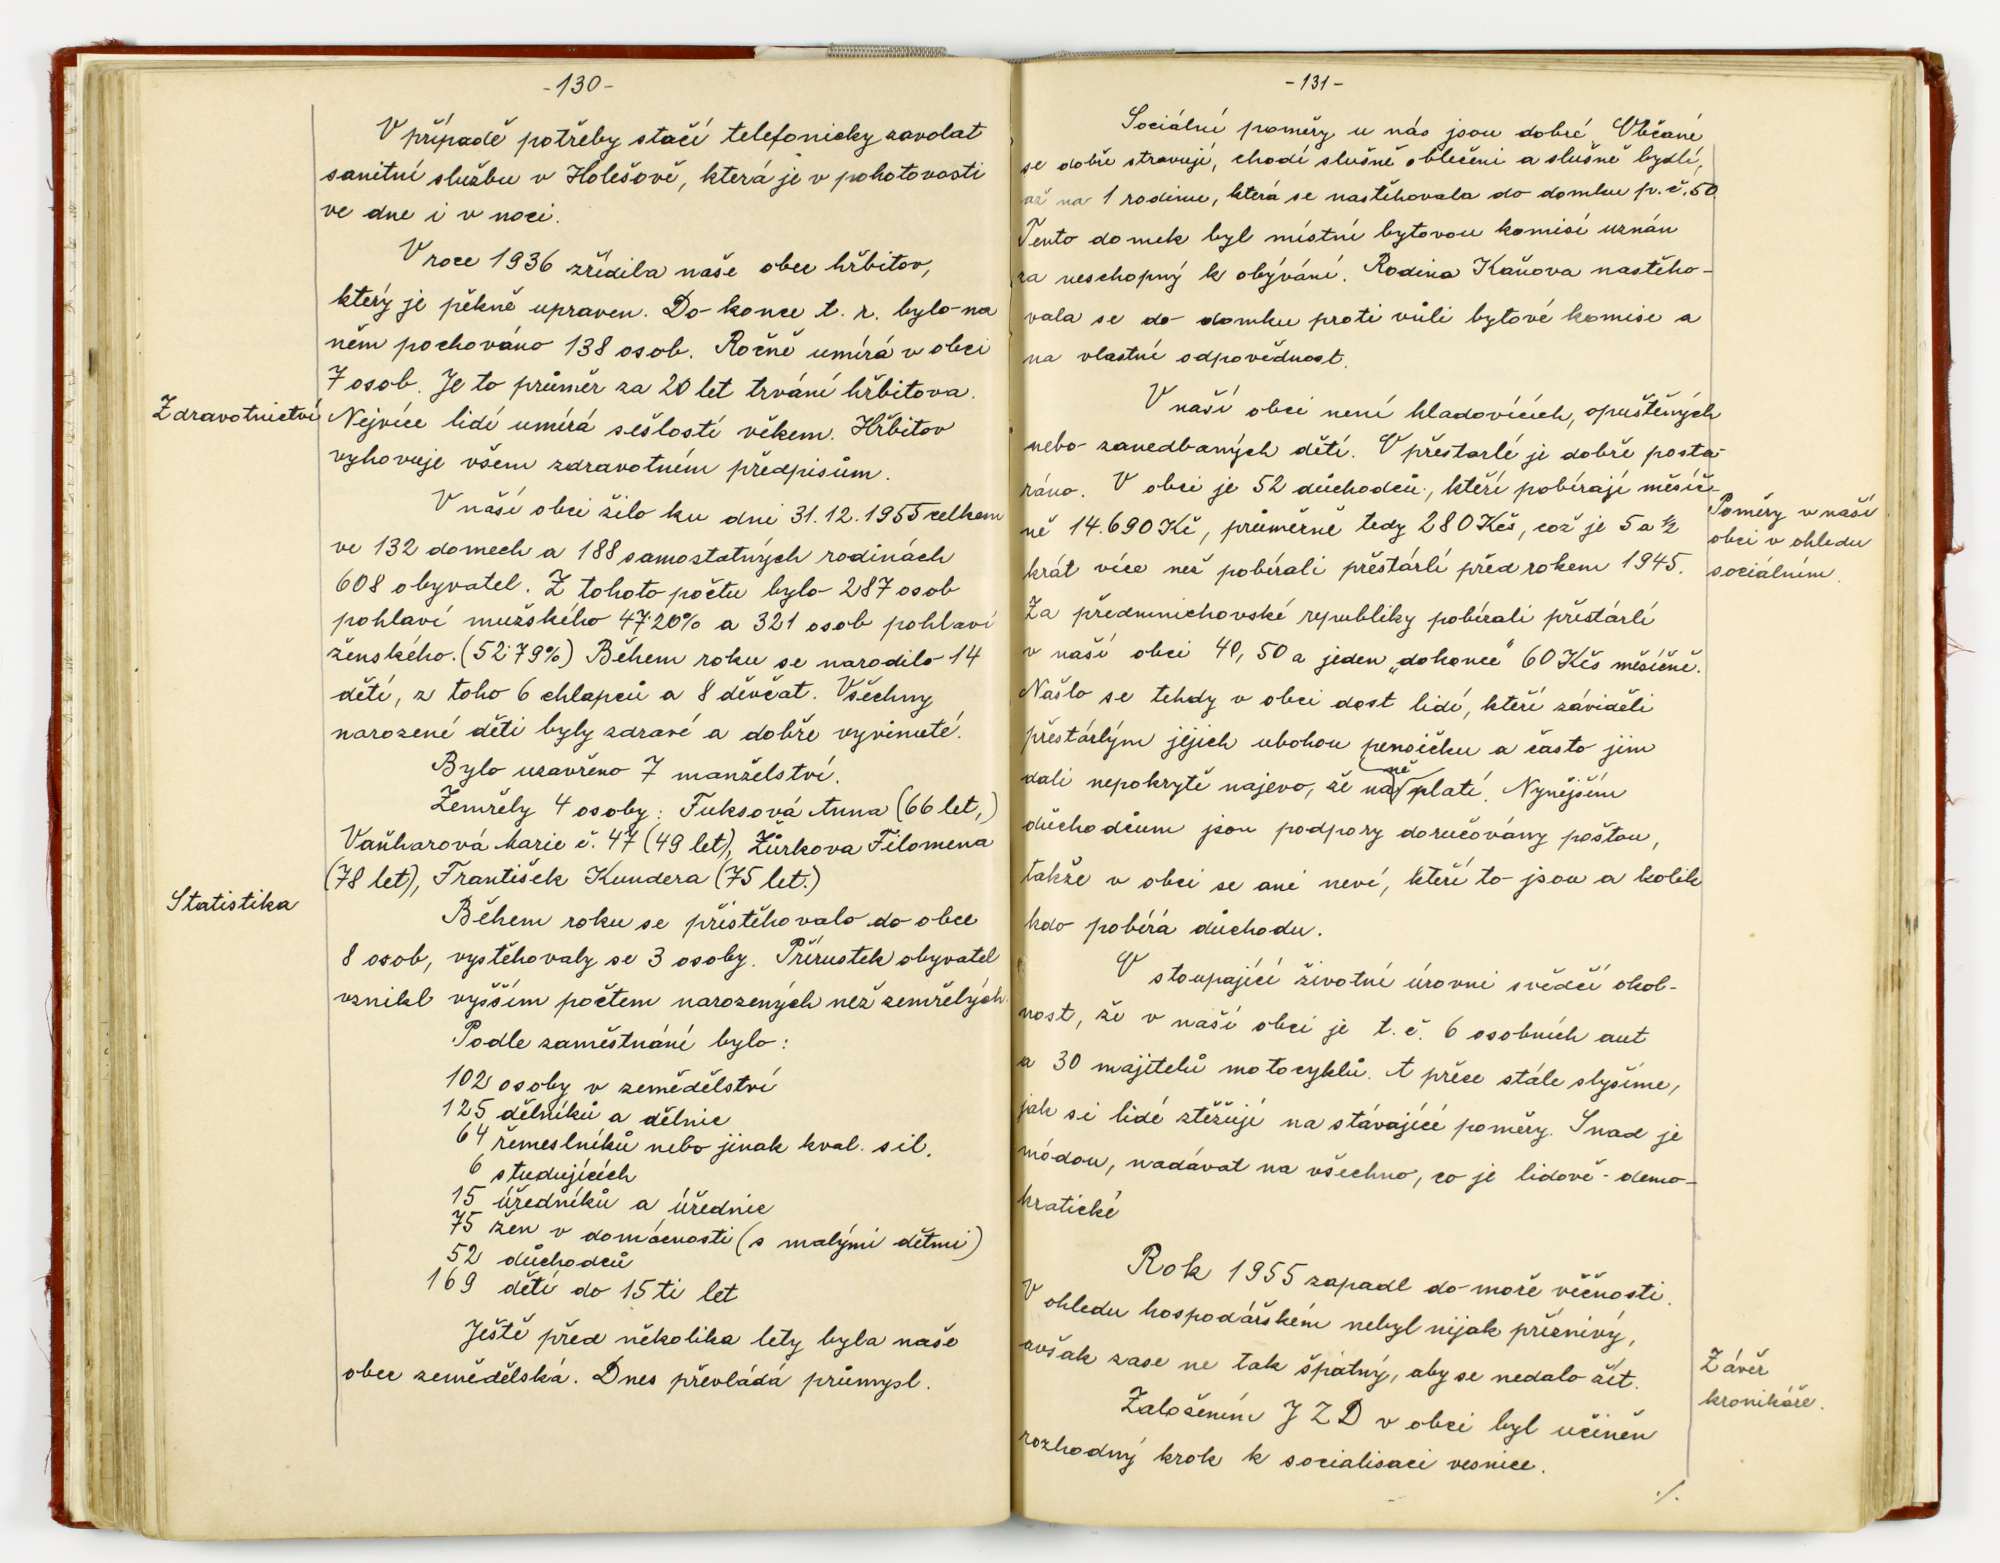 -130-
V případě potřeby stačí telefonicky zavolat
sanitní službu v Holešově, která je v pohotovosti
ve dne i v noci.
V roce 1936 zřídila naše obec hřbitov,
který je pěkně upraven. Do konce t. r. bylo na
něm pochováno 138 osob. Ročně umírá v obci
7 osob. Je to průměr za 20 let trvání hřbitova.
Zdravotnictví
Nejvíce lidí umírá sešlostí věkem. Hřbitov
vyhovuje všem zdravotním předpisům.
V naší obci žilo ku dni 31.12.1955 celkem
ve 132 domech a 188 samostatných rodinách
608 obyvatel. Z tohoto počtu bylo 287 osob
pohlaví mužského 47·20% a 321 osob pohlaví
ženského. (52·79%) Během roku se narodilo 14
dětí, z toho 6 chlapců a 8 děvčat. Všechny
narozené děti byly zdravé a dobře vyvinuté.
Bylo uzavřeno 7 manželství.
Zemřely 4 osoby: Fuksová Anna (66 let,)
Vaňharová Marie č. 47 (49 let), Žůrkova Filomena
(78 let), František Kundera (75 let.)
Statistika
Během roku se přistěhovalo do obce
8 osob, vystěhovaly se 3 osoby. Přírustek obyvatel
vznikl vyšším počtem narozených než zemřelých.
Podle zaměstnání bylo:
102 osoby v zemědělství
125 dělníků a dělnic
64 řemeslníků nebo jinak kval. sil.
6 studujících
15 úředníků a úřednic
75 žen v domácnosti (s malými dětmi)
52 důchodců
169 dětí do 15ti let
Ještě před několika lety byla naše
obec zemědělská. Dnes převládá průmysl.
-131-
Sociální poměry u nás jsou dobré. Občané
se dobře stravují, chodí slušně oblečeni a slušně bydlí,
až na 1 rodinu, která se nastěhovala do domku p.č. 50.
Tento domek byl místní bytovou komisí uznán
za neschopný k obývání. Rodina Kaňova nastěho-
vala se do domku proti vůli bytové komise a
na vlastní odpovědnost.
V naší obci není hladovících, opuštěných
nebo zanedbaných dětí. O přestarlé je dobře posta-
ráno. V obci je 52 důchodců, kteří pobírají měsíč-
ně 14.690 Kč, průměrně tedy 280 Kčs, což je 5 a ½
krát více než pobírali přestárlí před rokem 1945.
Poměry v naší
obci v ohledu
sociálním.
Za předmnichovské republiky pobírali přestárlí
v naší obci 40, 50 a jeden „dokonce" 60 Kčs měsíčně.
Našlo se tehdy v obci dost lidí, kteří záviděli
přestárlým jejich ubohou pensičku a často jim
dali nepokrytě najevo, že na ně platí. Nynějším
důchodcům jsou podpory doručovány poštou,
takže v obci se ani neví, kteří to jsou a kolik
kdo pobírá důchodu.
O stoupající životní úrovni svědčí okol-
nost, že v naší obci je t. č. 6 osobních aut
a 30 majitelů motocyklů. A přece stále slyšíme,
jak si lidé stěžují na stávající poměry. Snad je
módou, nadávat na všechno, co je lidově-demo-
kratické
Rok 1955 zapadl do moře věčnosti.
V ohledu hospodářském nebyl nijak příznivý,
avšak zase ne tak špatný, aby se nedalo žít.
Závěr
kronikáře.
Založením JZD v obci byl učiněn
rozhodný krok k socialisaci vesnice.
./.